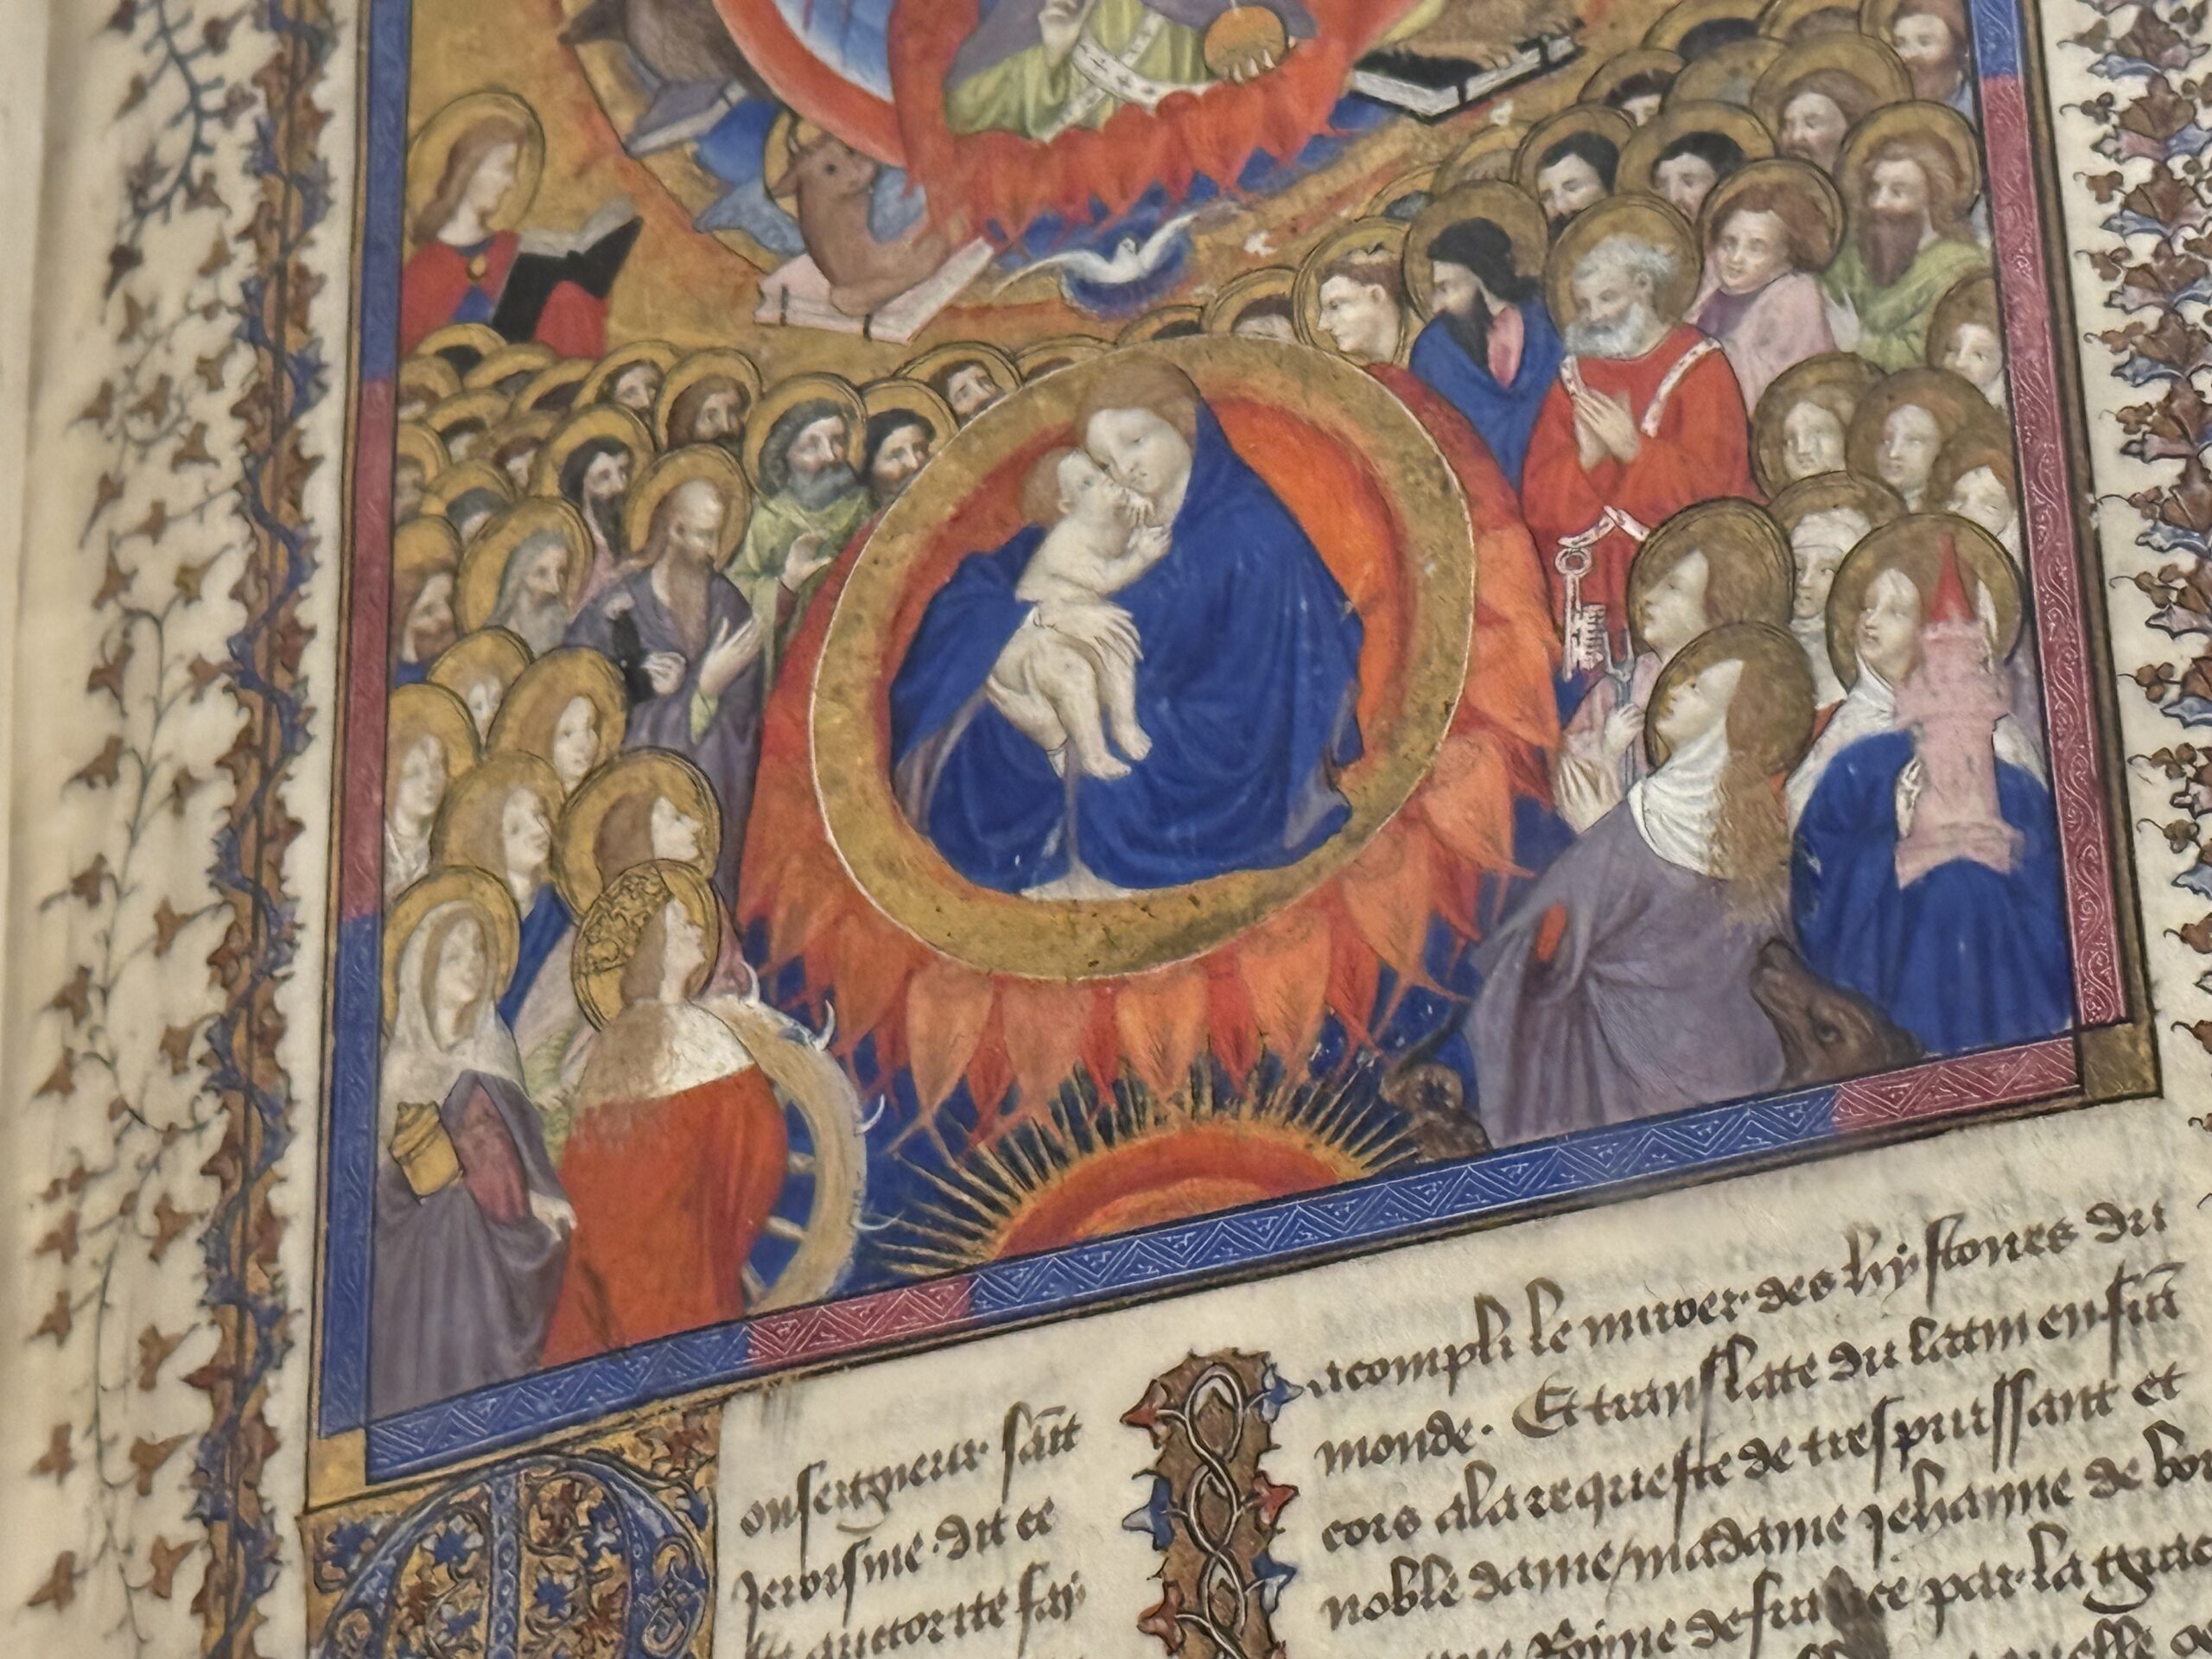 onseigneur saīt
Jerosme dit ce
auctorite say
acompli le miroer des hystoires du
monde. Et translate du latin en frā
cois a la requeste de tres puissant et
noble dame / madame Jehanne de bou
Royne de france par la grace